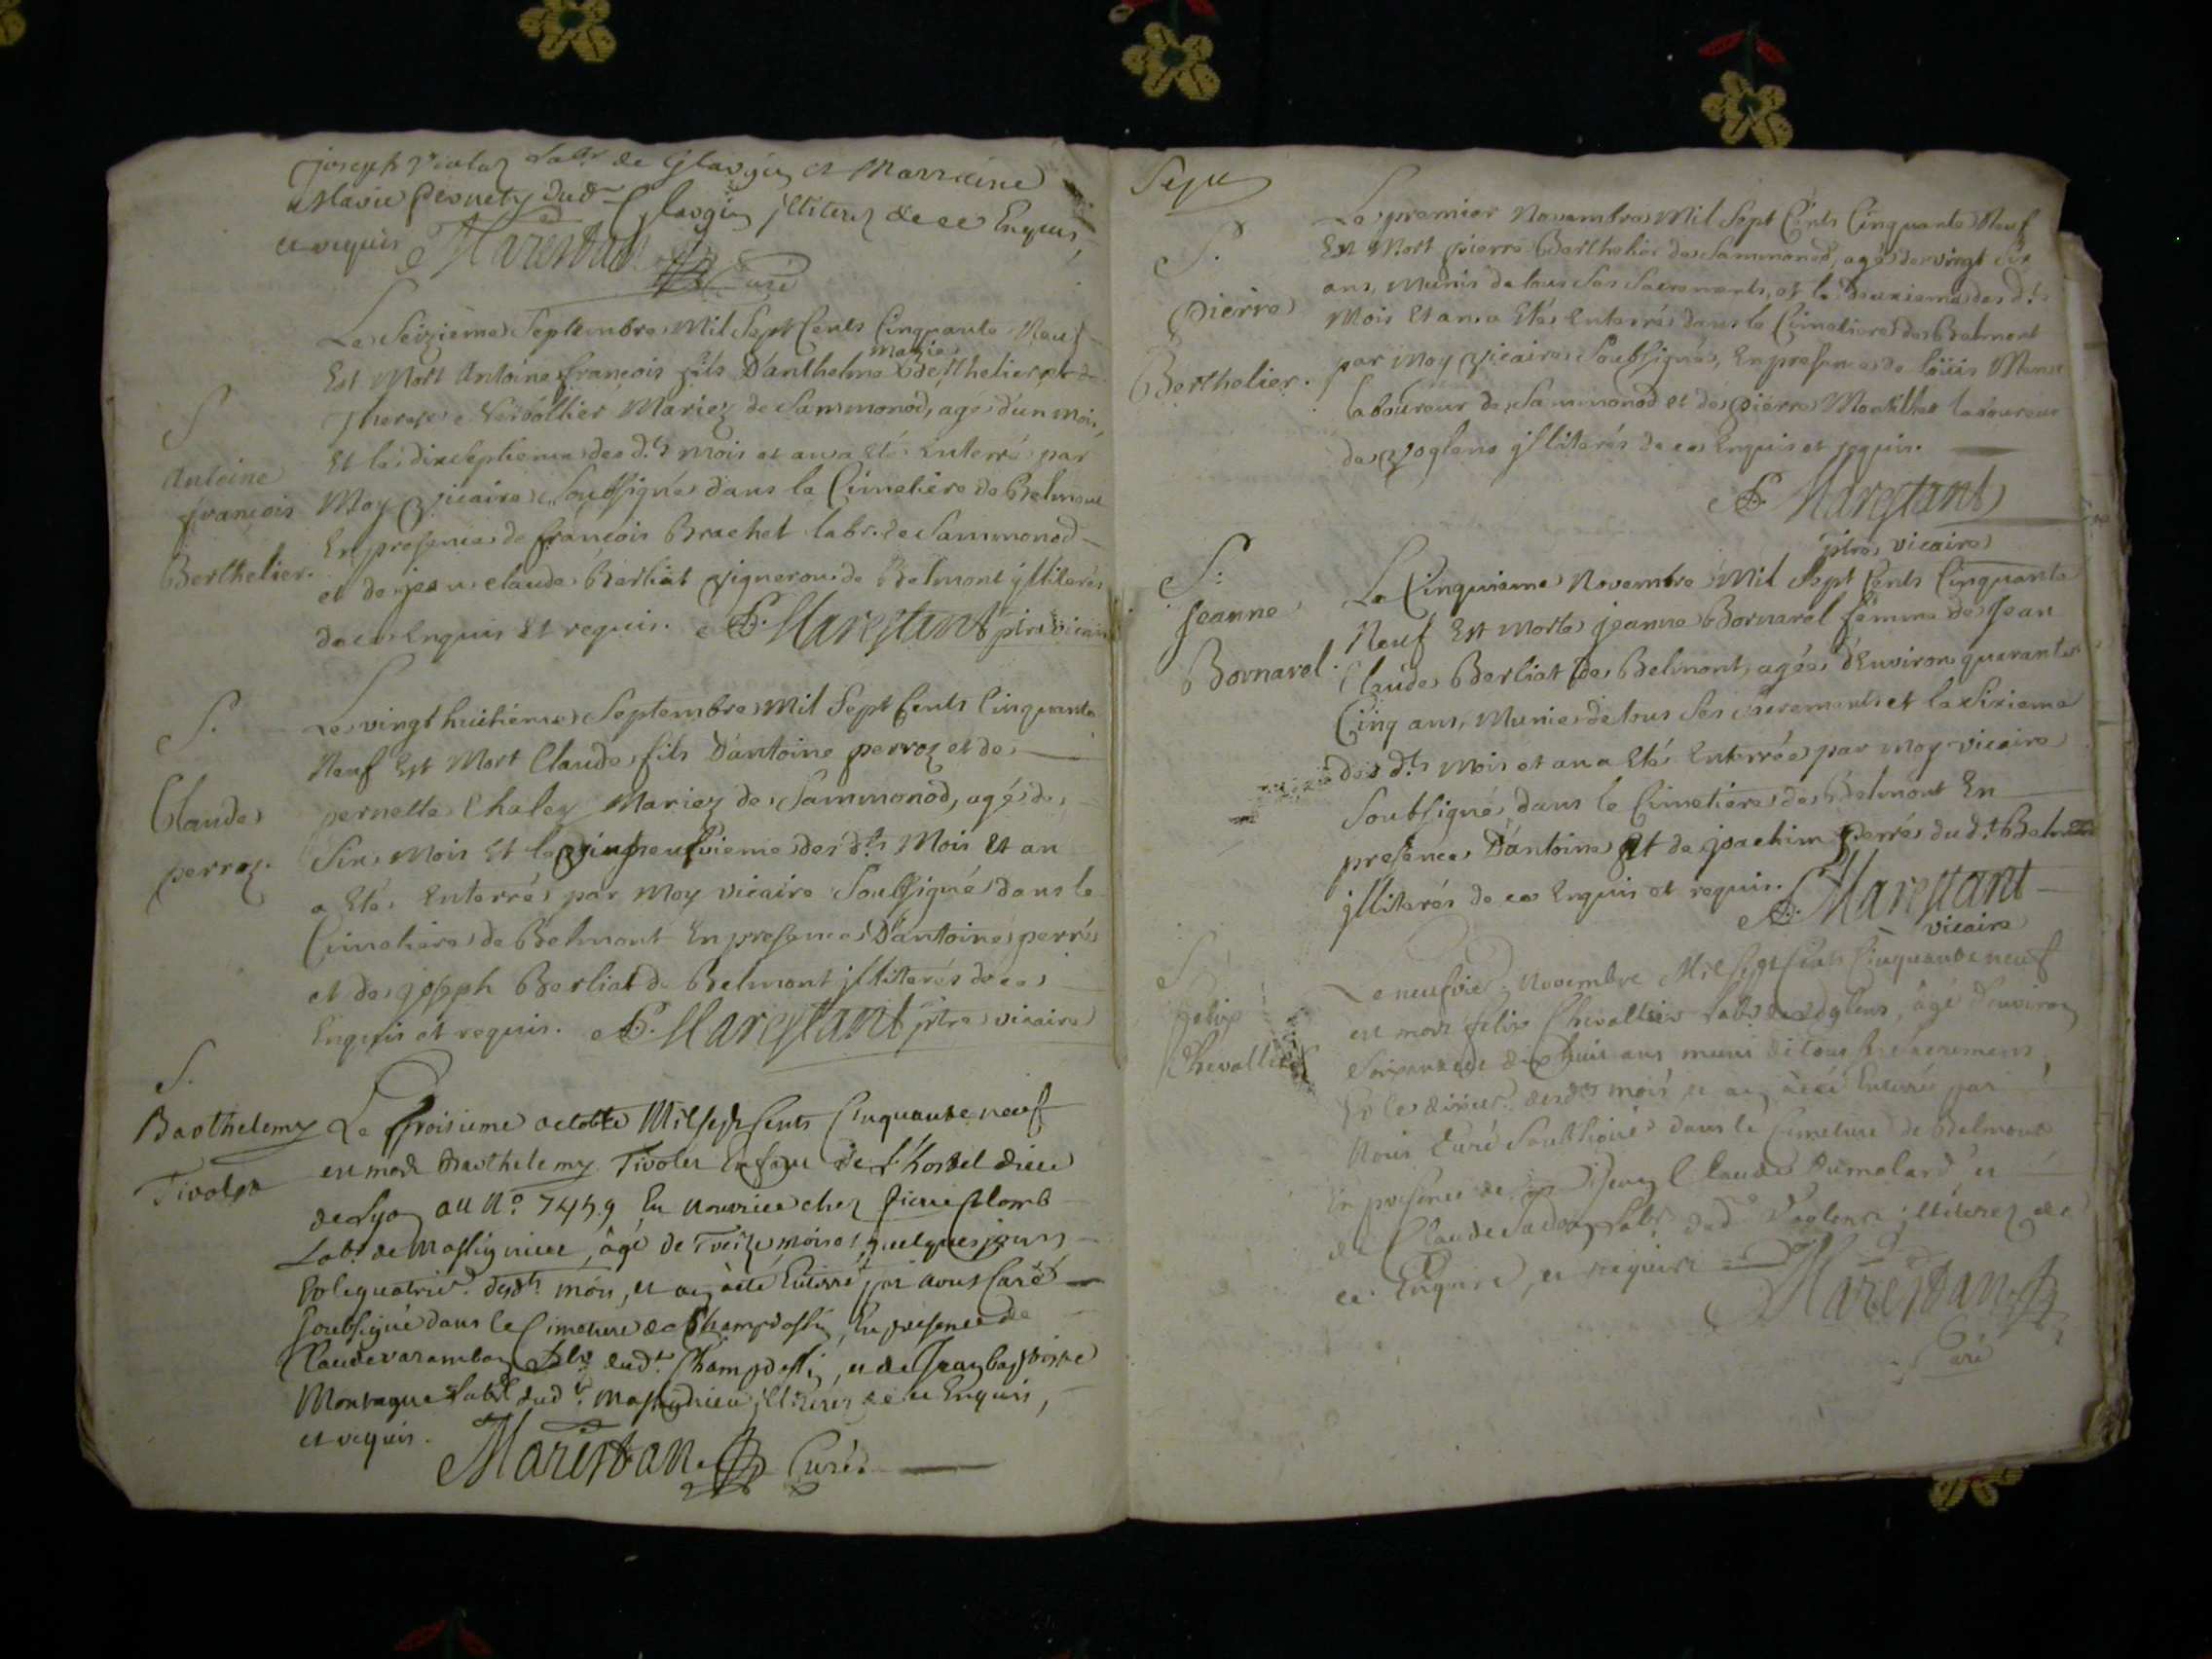 joseph Violaz Labr. de Glargin et Marraine
Marie Pernety dud. Glargin jlliterez de ce Enquis,
et requis Marestan Curé
Le Seizieme Septembre Mil Sept Cents Cinquante Neuf
Est Mort Antoine françois fils D'anthelme marie Berthelier et de
Therese Vervollier Mariez de Sammonod, agé d'un mois,
Et le dixseptieme des d.ts mois et an a Eté Enterré par
Moy Vicaire Soubsigné dans le Cimetiere de Belmont
En presence de françois Brachet labr. de Sammonod
et de jean claude Berliat Vigneron de Belmont jlliterés
de ce Enquis Et requis. Marestant ptre vicaire
S
Antoine
françois
Berthelier.
Le vingt huitieme Septembre Mil Sept Cents Cinquante
Neuf Est Mort Claude fils D'antoine perroz et de
pernette Chaley Mariez de Sammonod, agé de
Six Mois Et le vingt neufvieme des d.ts Mois Et an
a Eté Enterré par Moy vicaire Soubsigné dans le
Cimetiere de Belmont En presence D'antoine perré
et de joseph Berliat de Belmont jlliterés de ce
Enquis et requis. Marestant ptre vicaire
S.
Claude
perroz.
S.
Barthelemy
Tivolet
Le troisieme octobre Mil sept Cents Cinquante neuf
est mort Barthelemy Tivolet Enfant de l'hostel dieu
de Lyon au N.o 7459 En nourrice chez pierre Plomb
Labr. de Massignieu, agé de Treize mois et quelques jours
Et le quatrie. desd.ts mois, et an a eté Enterré par nous Curé
soubsigné dans le Cimetiere de Champdossin, En presence de
Claude varambon Labr. dud.t Champdossin, et de Jean baptiste
Montagne Labr. dud.t Massignieu jlliterez de ce Enquis,
et requis.
Marestan Curé.
Sepu
S.
Pierre
Berthelier.
Le premier Novembre Mil Sept Cents Cinquante Neuf
Est Mort pierre Berthelier de Sammonod, agé de vingt six
ans, Munis de tous Ses Sacrements, et le deuxieme des d.ts
Mois Et an a Eté Enterré dans le Cimetiere de Belmont
par Moy Vicaire Soubsigné, En presence de loüis
laboureur de Sammonod et de pierre Montillet laboureur
de Voglens jlliterés de ce Enquis et requis.
Marestant
ptre vicaire
S:
Jeanne
Bornarel.
Le Cinquieme Novembre Mil Sept Cents Cinquante
Neuf Est Morte jeanne Bornarel femme de Jean
Claude Berliat de Belmont, agée d'Environ quarante
Cinq ans, Munie de tous Ses sacrements et le Sixieme
des d.ts Mois et an a Eté Enterrée par moy vicaire
Soubsigné, dans le Cimetiere de Belmont En
presence D'antoine Et de joachim Perré du d.t Belmont
jlliterés de ce Enquis et requis. Marestant
vicaire
S
felix
Chevallier
Le neufvie. Novembre Mil sept Cents Cinquante neuf
est mort felix Chevallier Labr. de Voglens, agé d'environ
Soixante et dix huit ans muni de tous ses Sacremens,
Et le dixie. desd.ts mois et an a eté Enterré par
Nous Curé Soubsigné dans le Cimetiere de Belmont
En presence de Jean Claude Dumolard et
de Claude Labr. dud. Voglens jlliterez de
ce Enquis, et requis Marestan
Curé